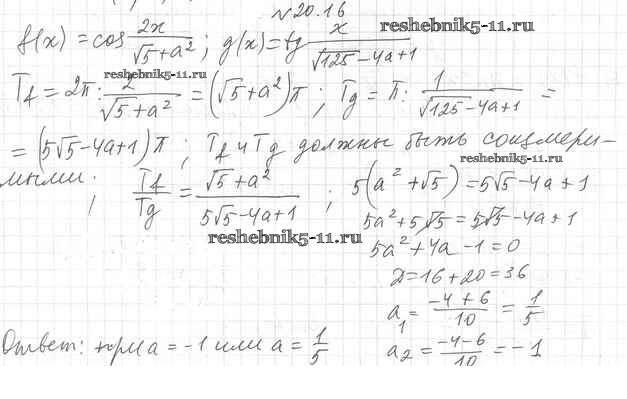 №20.16
f(x) = cos 2x/(√5+a²); g(x) = tg x/(√125-4a+1)
reshebnik5-11.ru
T_f = 2π : 2/(√5+a²) = (√5+a²)π ; T_g = π : 1/(√125-4a+1) =
reshebnik5-11.ru
= (5√5-4a+1)π ; T_f и T_g должны быть соизмери-
reshebnik5-11.ru
мыми. ; T_f/T_g = (√5+a²)/(5√5-4a+1) ; 5(a²+√5) = 5√5-4a+1
5a²+5√5 = 5√5-4a+1
reshebnik5-11.ru
5a²+4a-1=0
D=16+20=36
a₁ = (-4+6)/10 = 1/5
a₂ = (-4-6)/10 = -1
Ответ: при a = -1 или a = 1/5